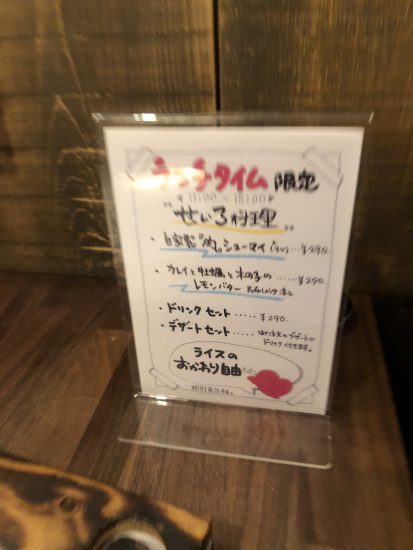 ランチタイム 限定
11:00 ~ 15:00
"せいろ料理"
・自家製"肉"シューマイ ... ¥290.
・カレイと牡蠣と木の子の ...... ¥290.
レモンバター
・ドリンクセット ..... ¥290.
・デザートセット .....
ライスの
おかわり自由